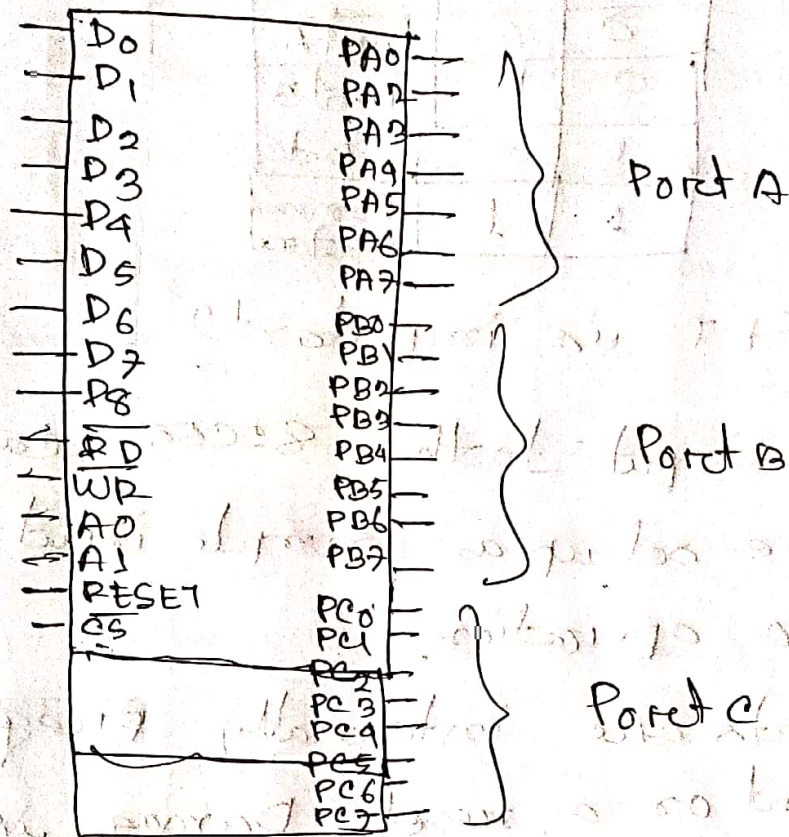 D0
D1
D2
D3
D4
D5
D6
D7
D8
R̅D̅
W̅R̅
A0
A1
RESET
C̅S̅
PA0
PA2
PA3
PA4
PA5
PA6
PA7
Port A
PB0
PB1
PB2
PB3
PB4
PB5
PB6
PB7
Port B
PC0
PC1
PC2
PC3
PC4
PC5
PC6
PC7
Port C